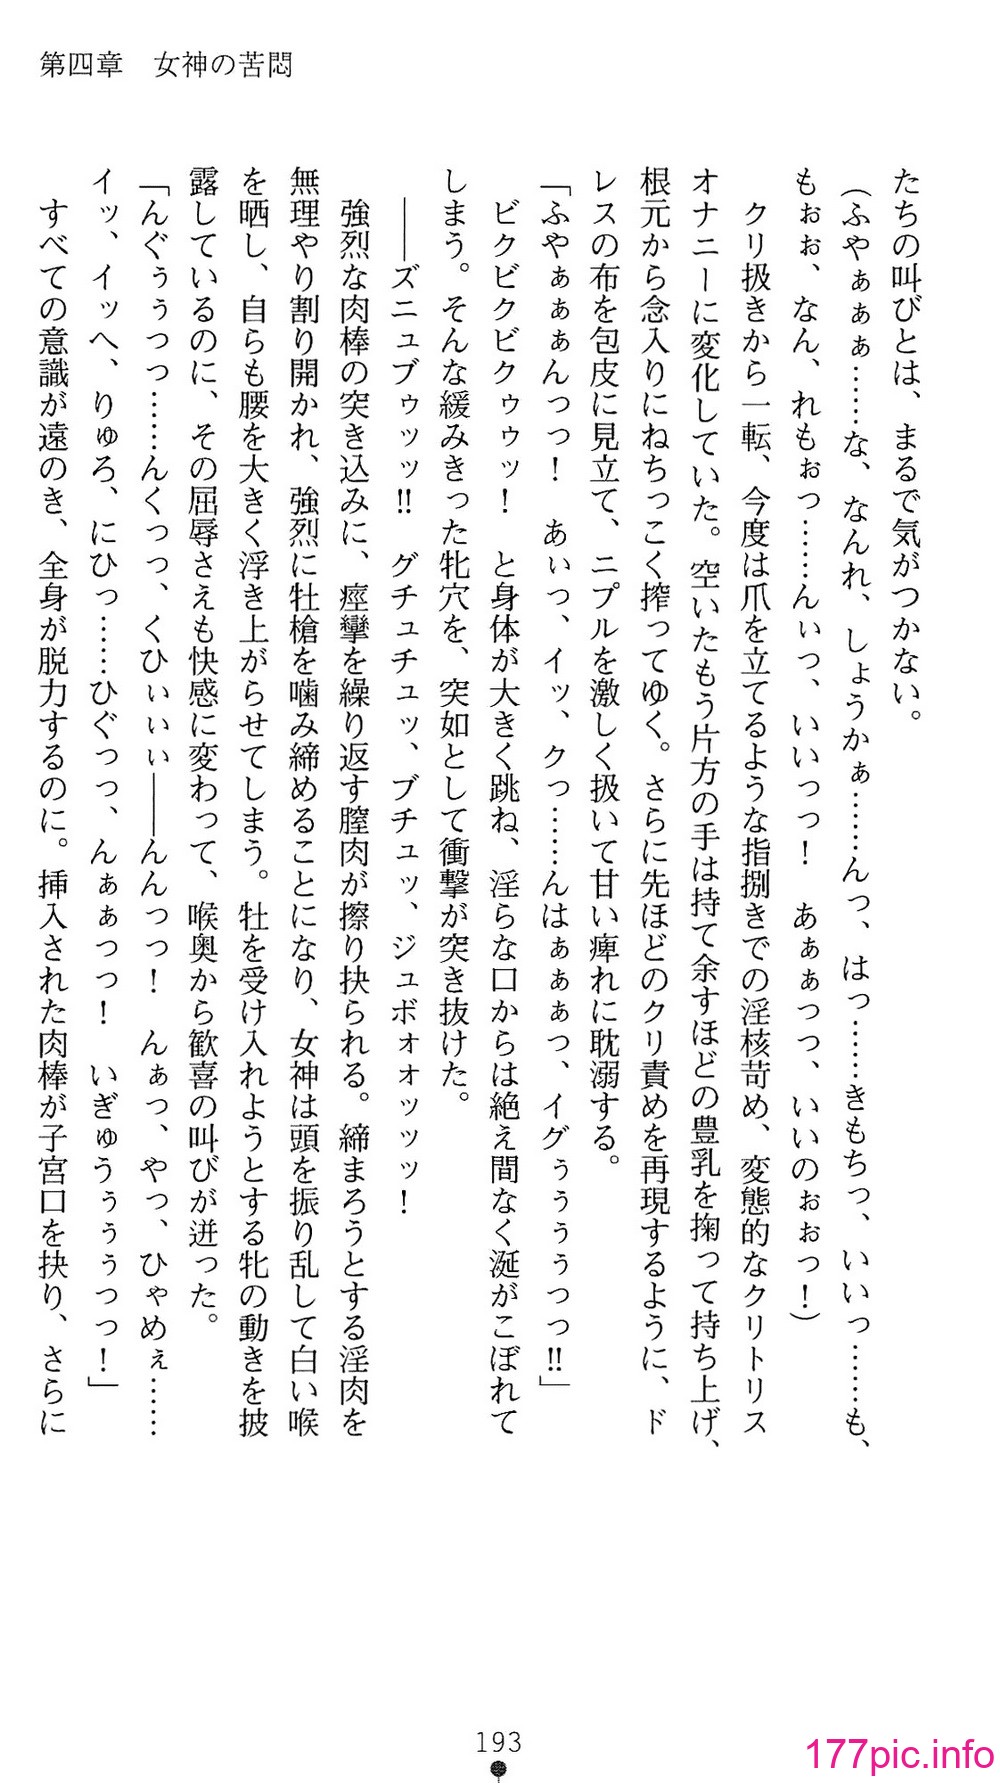 第四章　女神の苦悶
たちの叫びとは、まるで気がつかない。
（ふやぁぁぁ……な、なんれ、しょうかぁ……んっ、はっ……きもちっ、いいっ……も、
もぉぉ、なん、れもぉっ……んぃっ、いいっっ！　あぁぁっっ、いいのぉぉっ！）
クリ扱きから一転、今度は爪を立てるような指捌きでの淫核苛め、変態的なクリトリス
オナニーに変化していた。空いたもう片方の手は持て余すほどの豊乳を掬って持ち上げ、
根元から念入りにねちっこく搾ってゆく。さらに先ほどのクリ責めを再現するように、ド
レスの布を包皮に見立て、ニプルを激しく扱いて甘い痺れに耽溺する。
「ふやぁぁぁんっっ！　あぃっ、イッ、クっ……んはぁぁぁっ、イグぅぅぅぅっっ‼」
ビクビクビクゥゥッ！　と身体が大きく跳ね、淫らな口からは絶え間なく涎がこぼれて
しまう。そんな緩みきった牝穴を、突如として衝撃が突き抜けた。
――ズニュブゥッッ‼　グチュチュッ、ブチュッ、ジュボォォッッッ！
強烈な肉棒の突き込みに、痙攣を繰り返す膣肉が擦り抉られる。締まろうとする淫肉を
無理やり割り開かれ、強烈に牡槍を噛み締めることになり、女神は頭を振り乱して白い喉
を晒し、自らも腰を大きく浮き上がらせてしまう。牡を受け入れようとする牝の動きを披
露しているのに、その屈辱さえも快感に変わって、喉奥から歓喜の叫びが迸った。
「んぐぅぅっっ……んくっっ、くひぃぃぃ――んんっっ！　んぁっ、やっ、ひゃめぇ……
イッ、イッへ、りゅろ、にひっ……ひぐっっ、んぁぁっっ！　いぎゅうぅぅぅっっ！」
すべての意識が遠のき、全身が脱力するのに。挿入された肉棒が子宮口を抉り、さらに
193
177pic.info